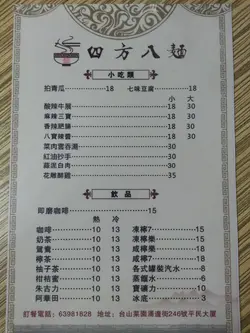 四方八麵
小吃類
拍青瓜 18 七味豆腐 18
小 大
酸辣牛展 18 30
麻辣三寶 18 30
香辣肥腸 18 30
八寶辣醬 18 30
菜肉雲吞湯 30
紅油抄手 30
蒜泥白肉 30
花雕醉雞 35
飲品
即磨咖啡 15
熱 冷
咖啡 10 13 凍檸7 15
奶茶 10 13 凍檸樂 15
鴛鴦 10 13 咸檸樂 15
檸茶 10 13 咸檸7 15
柚子茶 10 13 各式罐裝汽水 8
柑桔蜜 10 13 蒸餾水 6
朱古力 10 13 寶礦力 10
阿華田 10 13 冰底 3
訂餐電話：63981828 地址：台山菜園涌邊街246號平民大廈